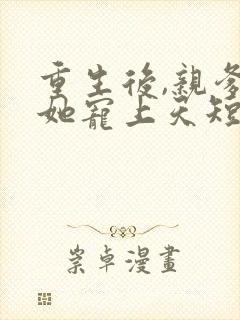 重生後,親爹
她寵上天短
崇卓漫畫